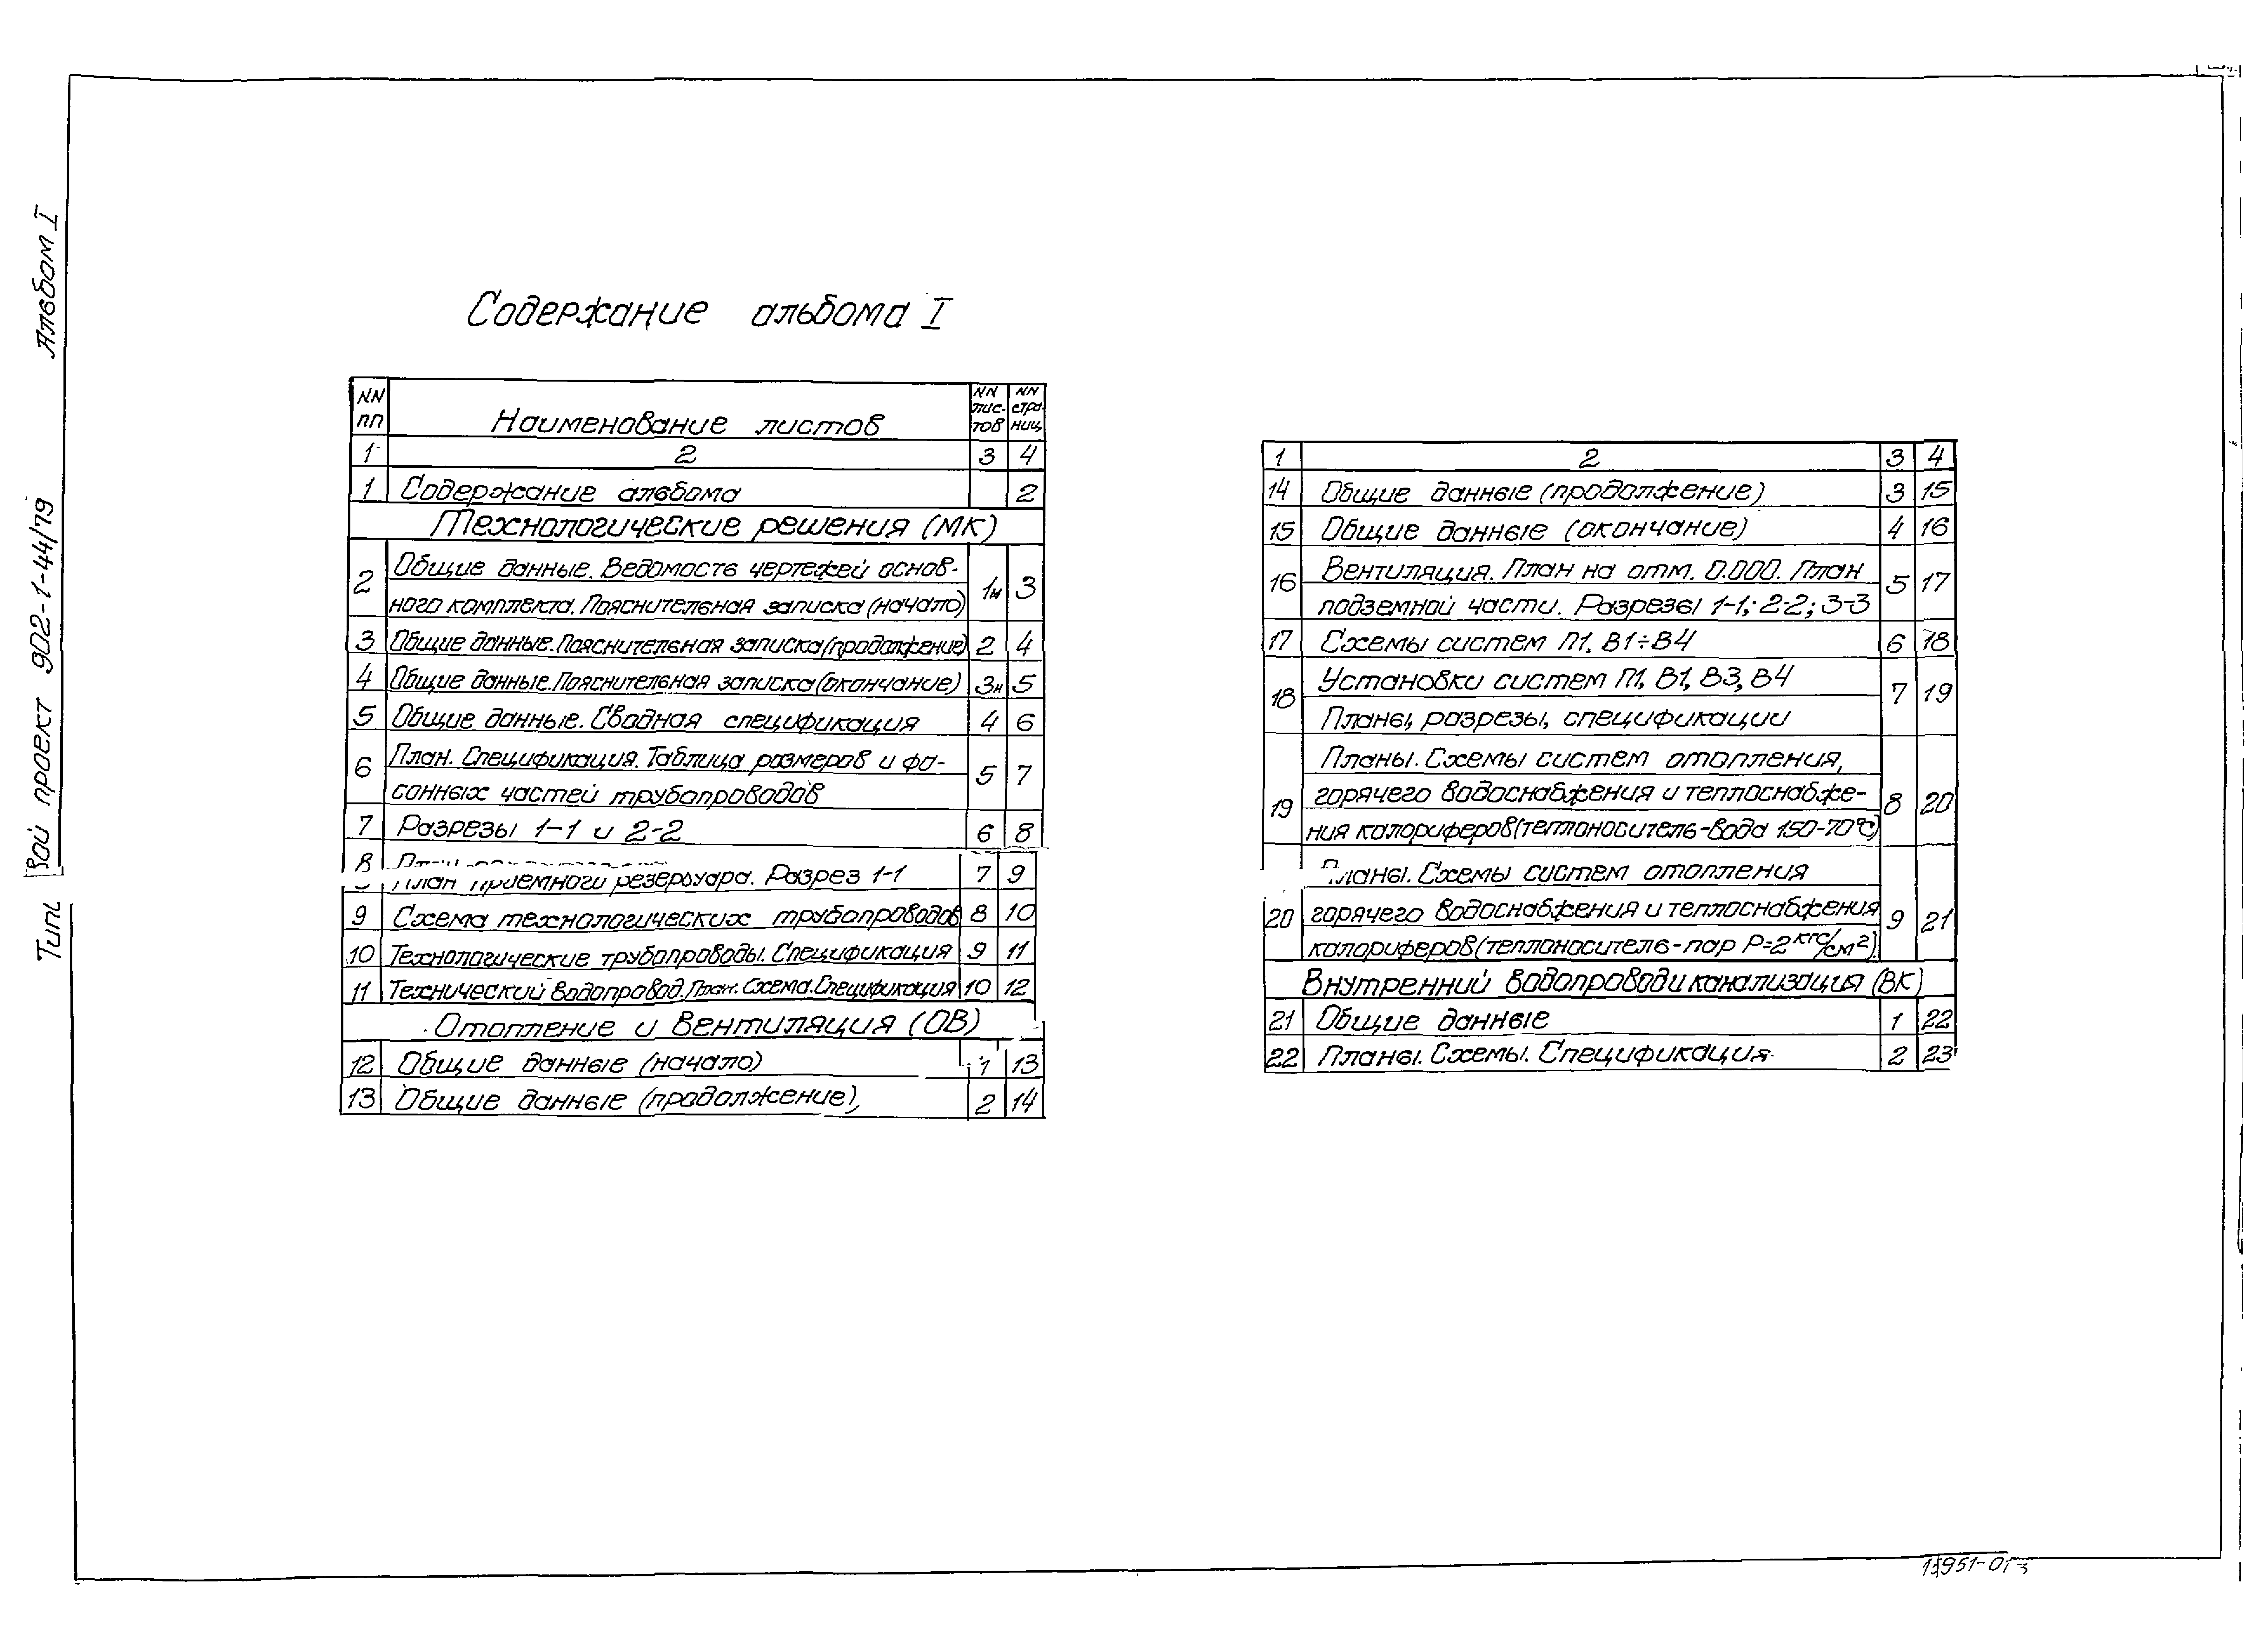 Альбом I
Вой проект 902-1-44/79
Типо
Содержание альбома I
NN пп Наименование листов NN лис-тов NN стра-ниц
1 2 3 4
1 Содержание альбома 2
Технологические решения (МК)
2 Общие данные. Ведомость чертежей основ-
ного комплекта. Пояснительная записка (начало) 1н 3
3 Общие данные. Пояснительная записка (продолжение) 2 4
4 Общие данные. Пояснительная записка (окончание) 3н 5
5 Общие данные. Сводная спецификация 4 6
6 План. Спецификация. Таблица размеров и фа-
сонных частей трубопроводов 5 7
7 Разрезы 1-1 и 2-2 6 8
8 План приемного резервуара. Разрез 1-1 7 9
9 Схема технологических трубопроводов 8 10
10 Технологические трубопроводы. Спецификация 9 11
11 Технический водопровод. План. Схема. Спецификация 10 12
Отопление и вентиляция (ОВ)
12 Общие данные (начало) 1 13
13 Общие данные (продолжение) 2 14
1 2 3 4
14 Общие данные (продолжение) 3 15
15 Общие данные (окончание) 4 16
16 Вентиляция. План на отм. 0.000. План
подземной части. Разрезы 1-1; 2-2; 3-3 5 17
17 Схемы систем П1, В1÷В4 6 18
18 Установки систем П1, В1, В3, В4
Планы, разрезы, спецификации 7 19
19 Планы. Схемы систем отопления,
горячего водоснабжения и теплоснабже-
ния калориферов (теплоноситель-вода 150-70°С) 8 20
20 Планы. Схемы систем отопления
горячего водоснабжения и теплоснабжения
калориферов (теплоноситель-пар Р=2кгс/см²). 9 21
Внутренний водопровод и канализация (ВК)
21 Общие данные 1 22
22 Планы. Схемы. Спецификация 2 23
15951-01 3